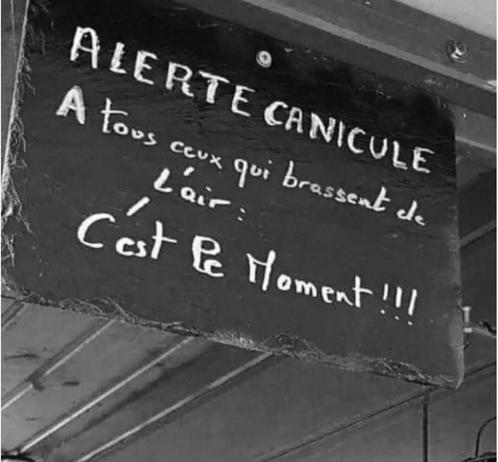 ALERTE CANICULE
A tous ceux qui brassent de
L'air :
C'est le Moment !!!